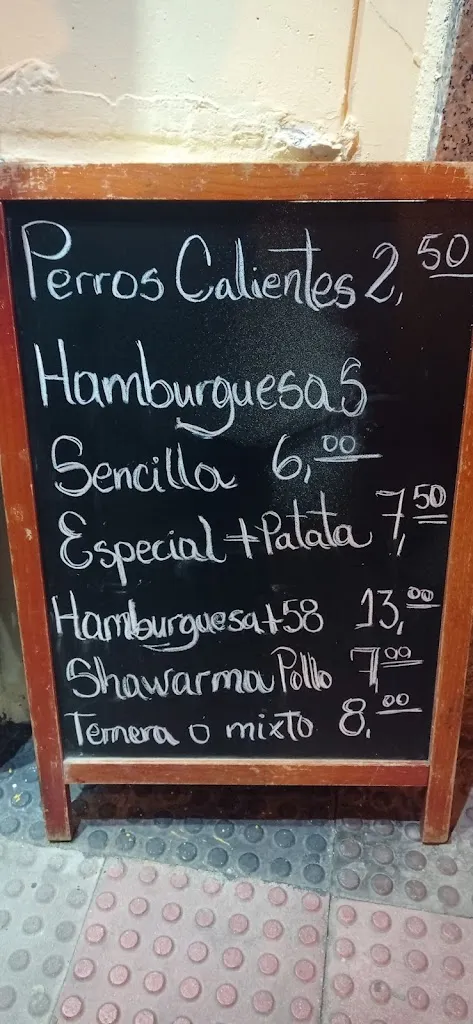 Perros Calientes 2,50
Hamburguesas
Sencilla 6,00
Especial + Patata 7,50
Hamburguesa +58 13,00
Shawarma Pollo 7,00
Ternera o mixto 8,00